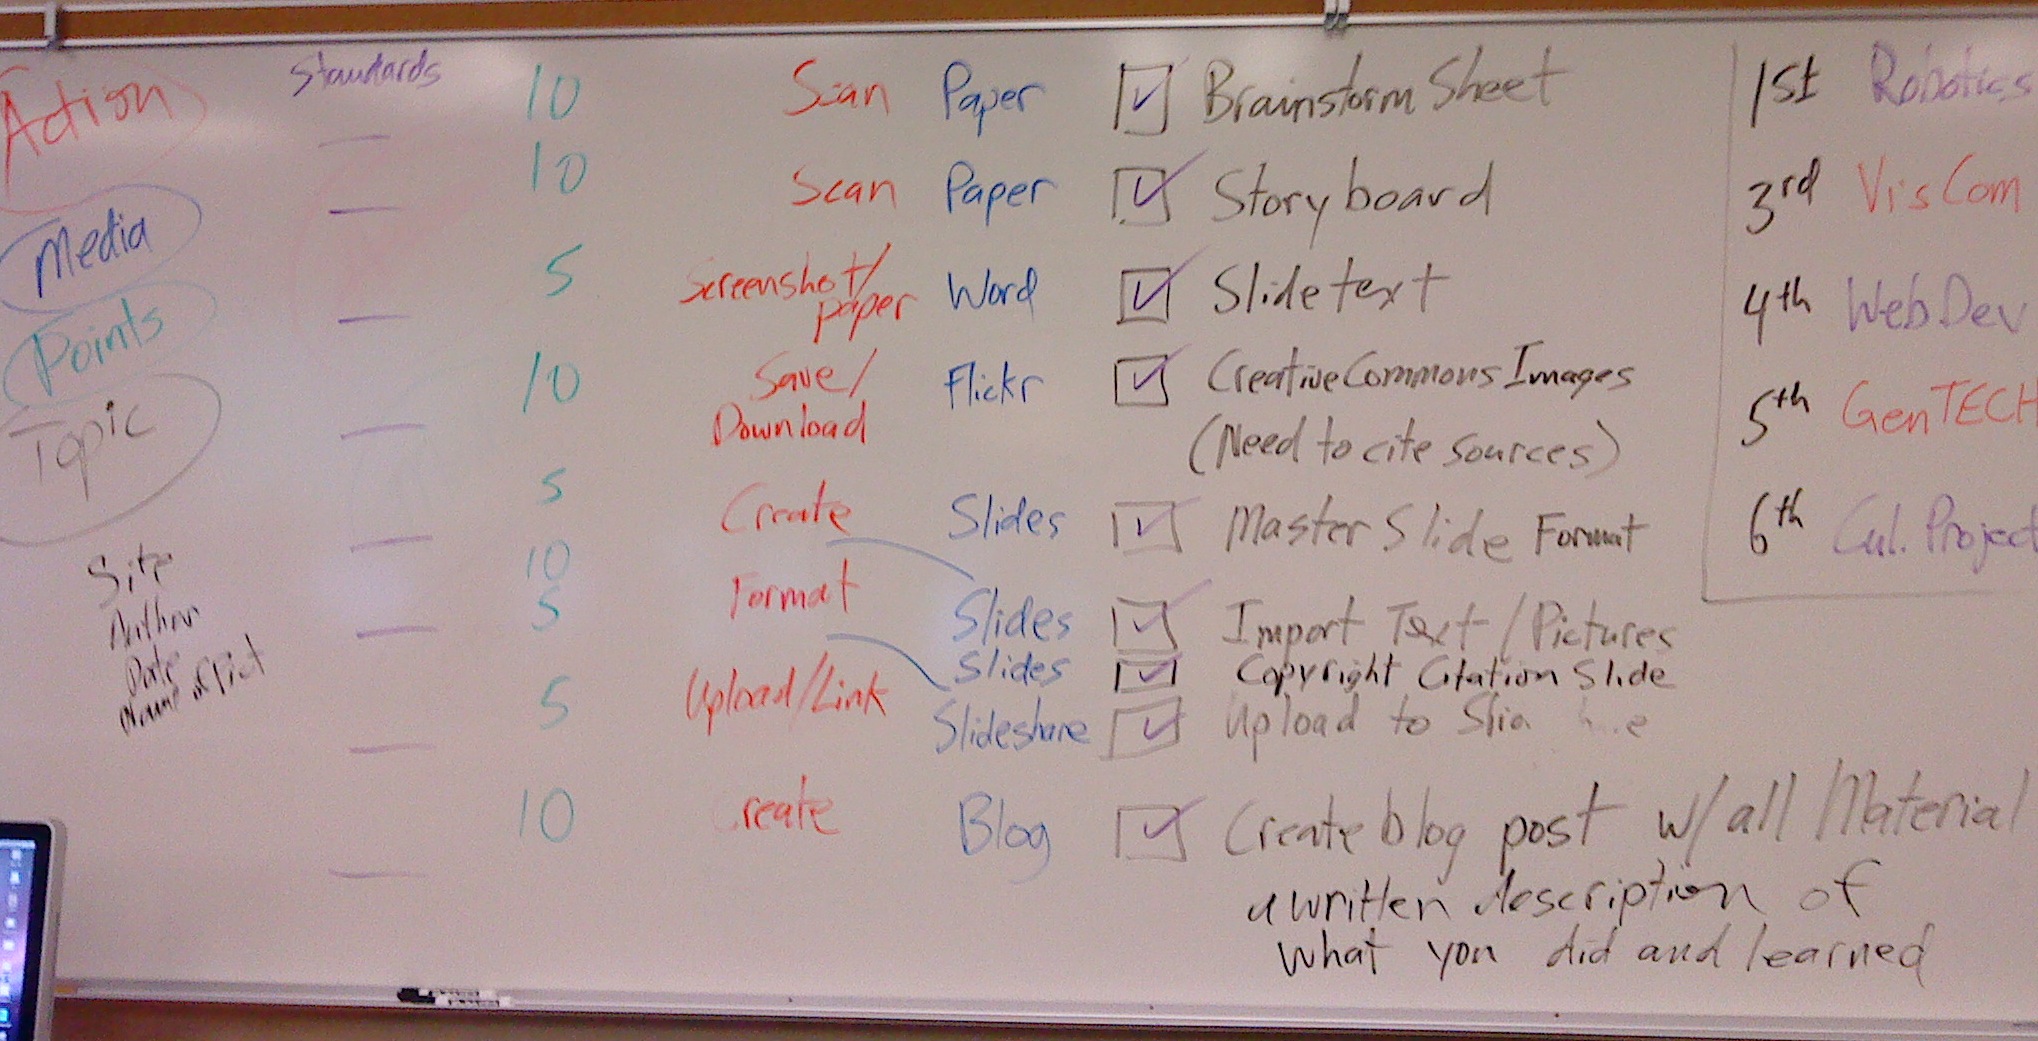 Action
Media
Points
Topic
Site
Author
Date
Name of Pict
Standards
10 Scan Paper Brainstorm Sheet
10 Scan Paper Storyboard
5 Screenshot/ paper Word Slide text
10 Save/ Download Flickr Creative Commons Images
(Need to cite sources)
5 Create Slides Master Slide Format
10 Format Slides Import Text/Pictures
5 Slides Copyright Citation Slide
5 Upload/Link Slideshare Upload to
10 Create Blog Create blog post w/ all Material
a written description of
what you did and learned
1st Robotics
3rd VisCom
4th WebDev
5th GenTECH
6th Cul. Project